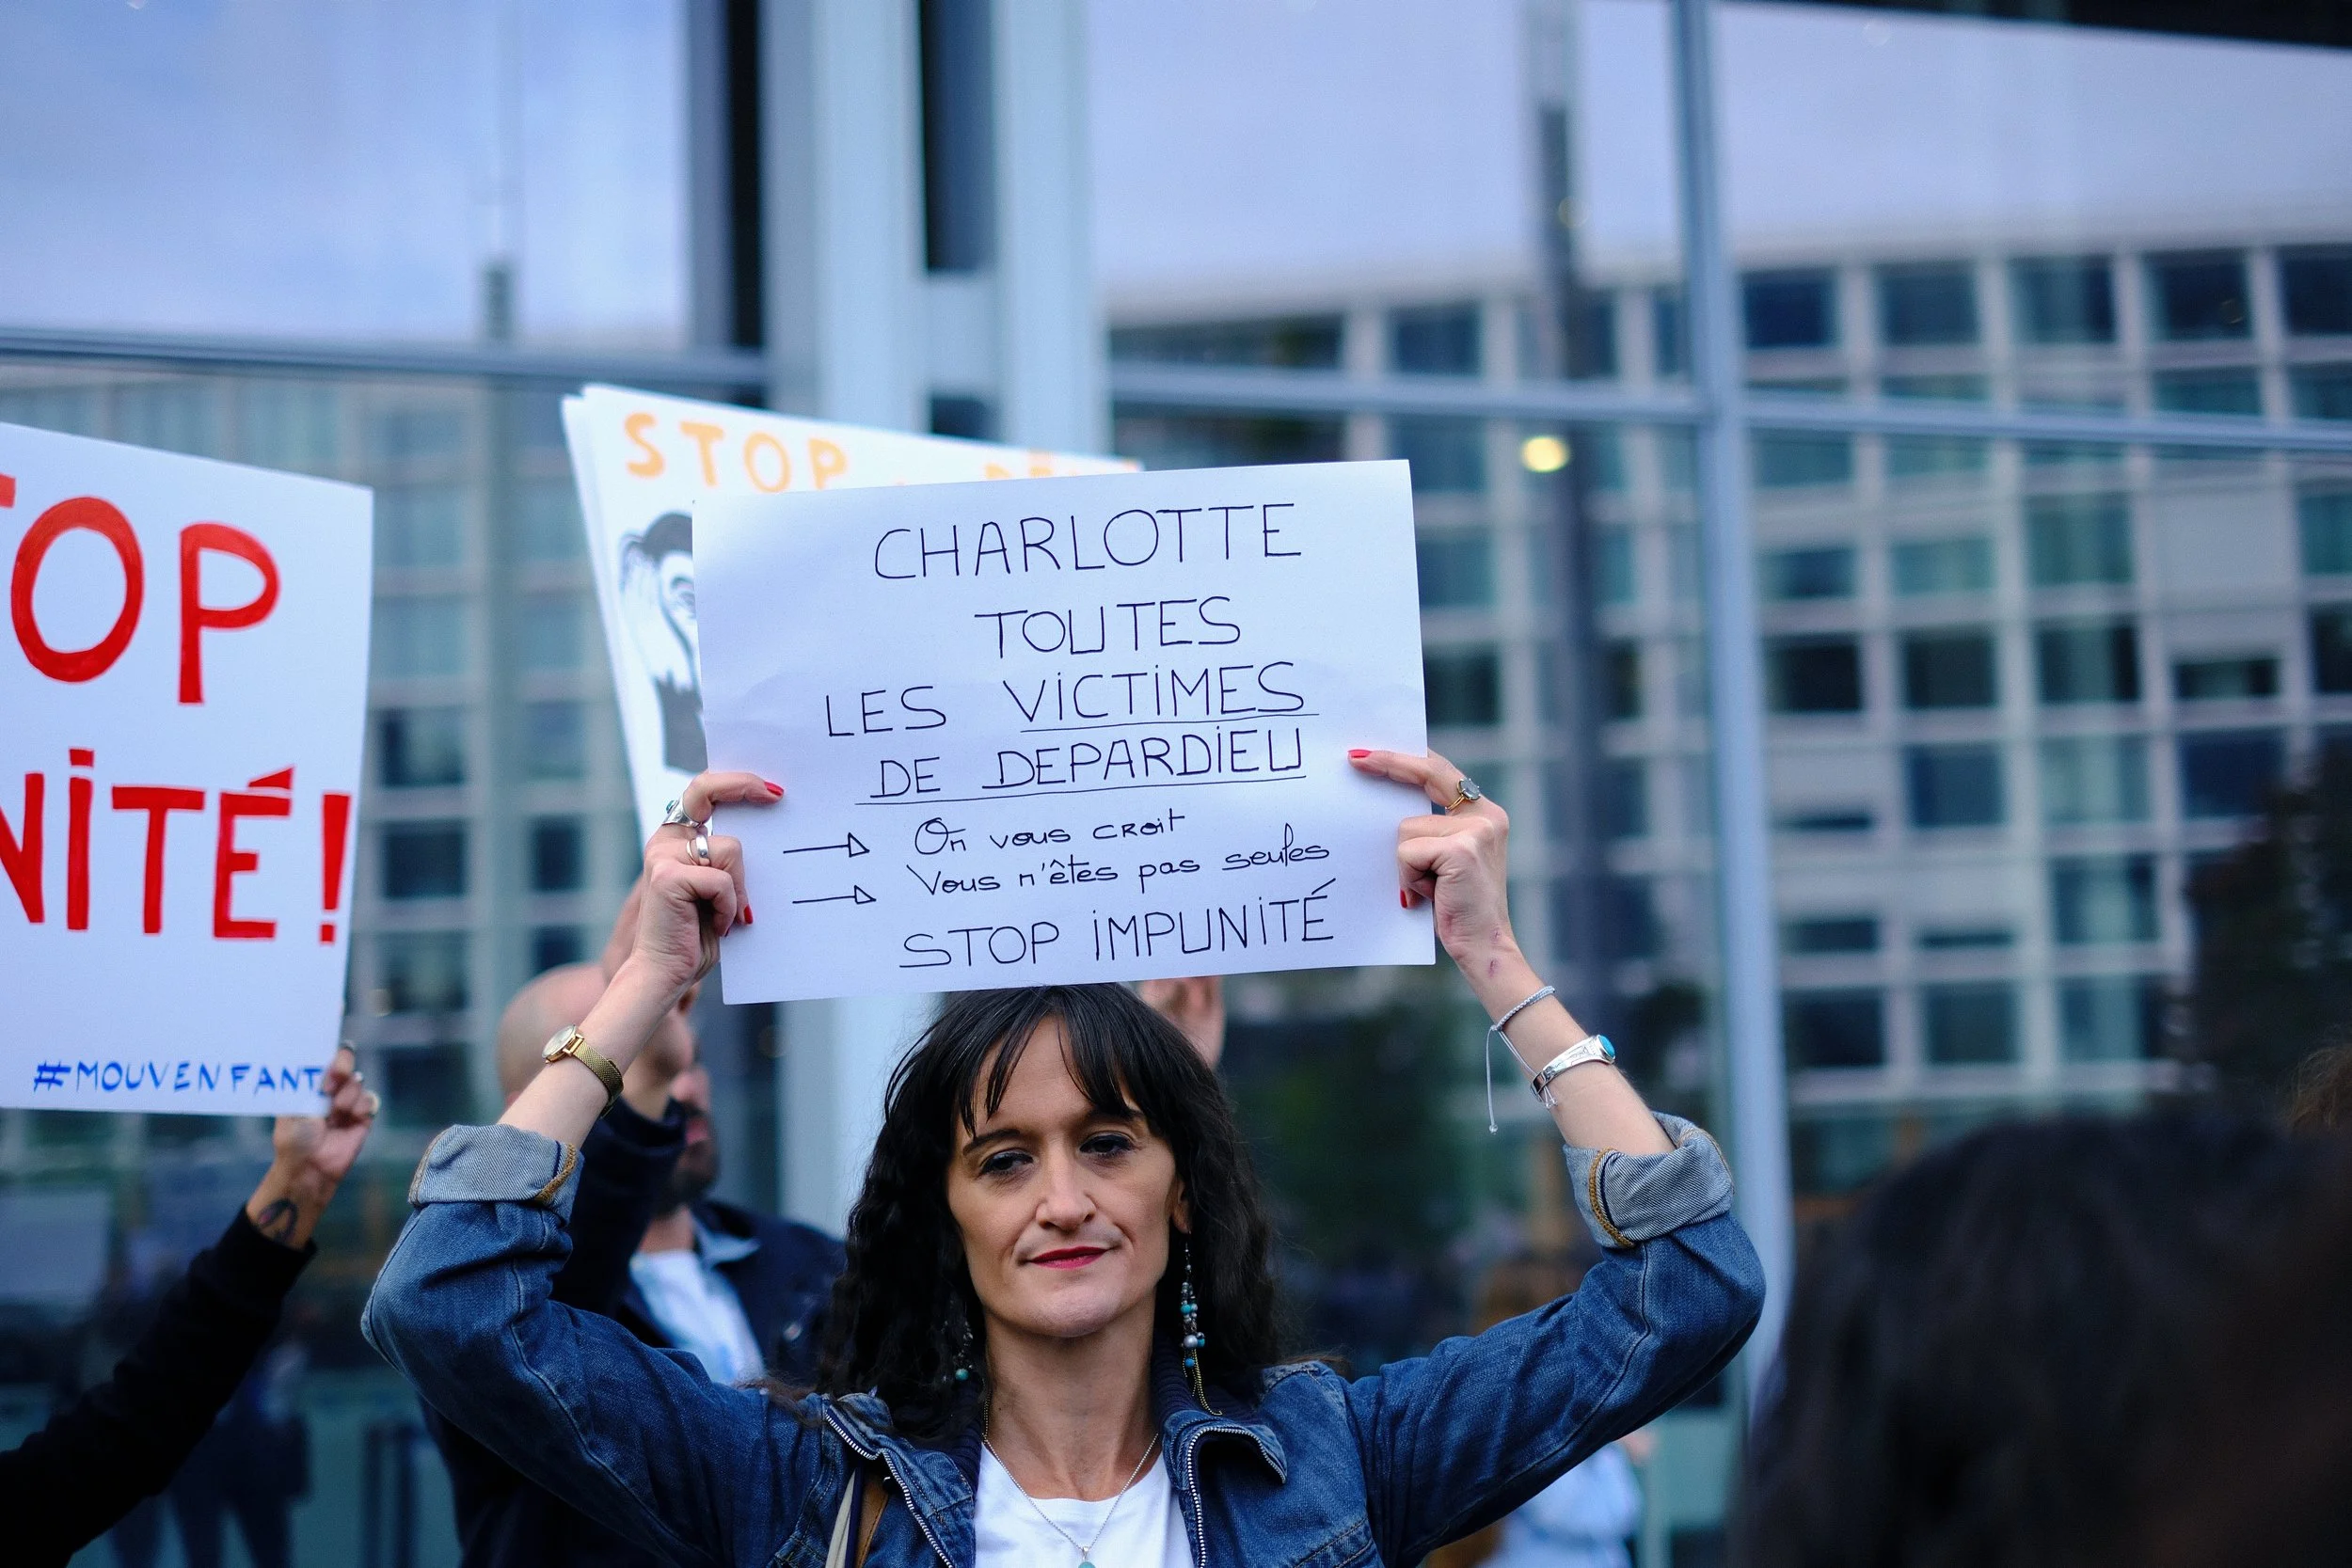 TOP
NITÉ!
#MOUVENFANT
STOP
CHARLOTTE
TOUTES
LES VICTIMES
DE DEPARDIEU
On vous croit
Vous n'êtes pas seules
STOP IMPUNITÉ